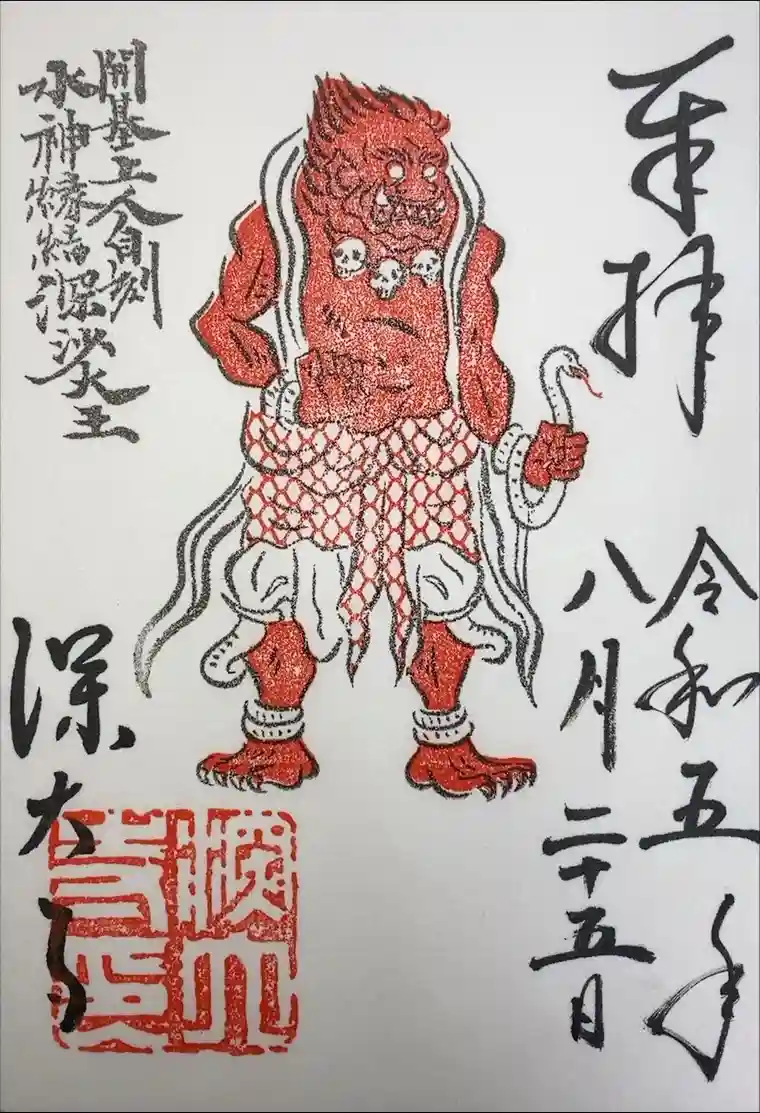 奉拝
令和五年
八月二十五日
開基上人自刻
水神縁結深沙大王
深大寺